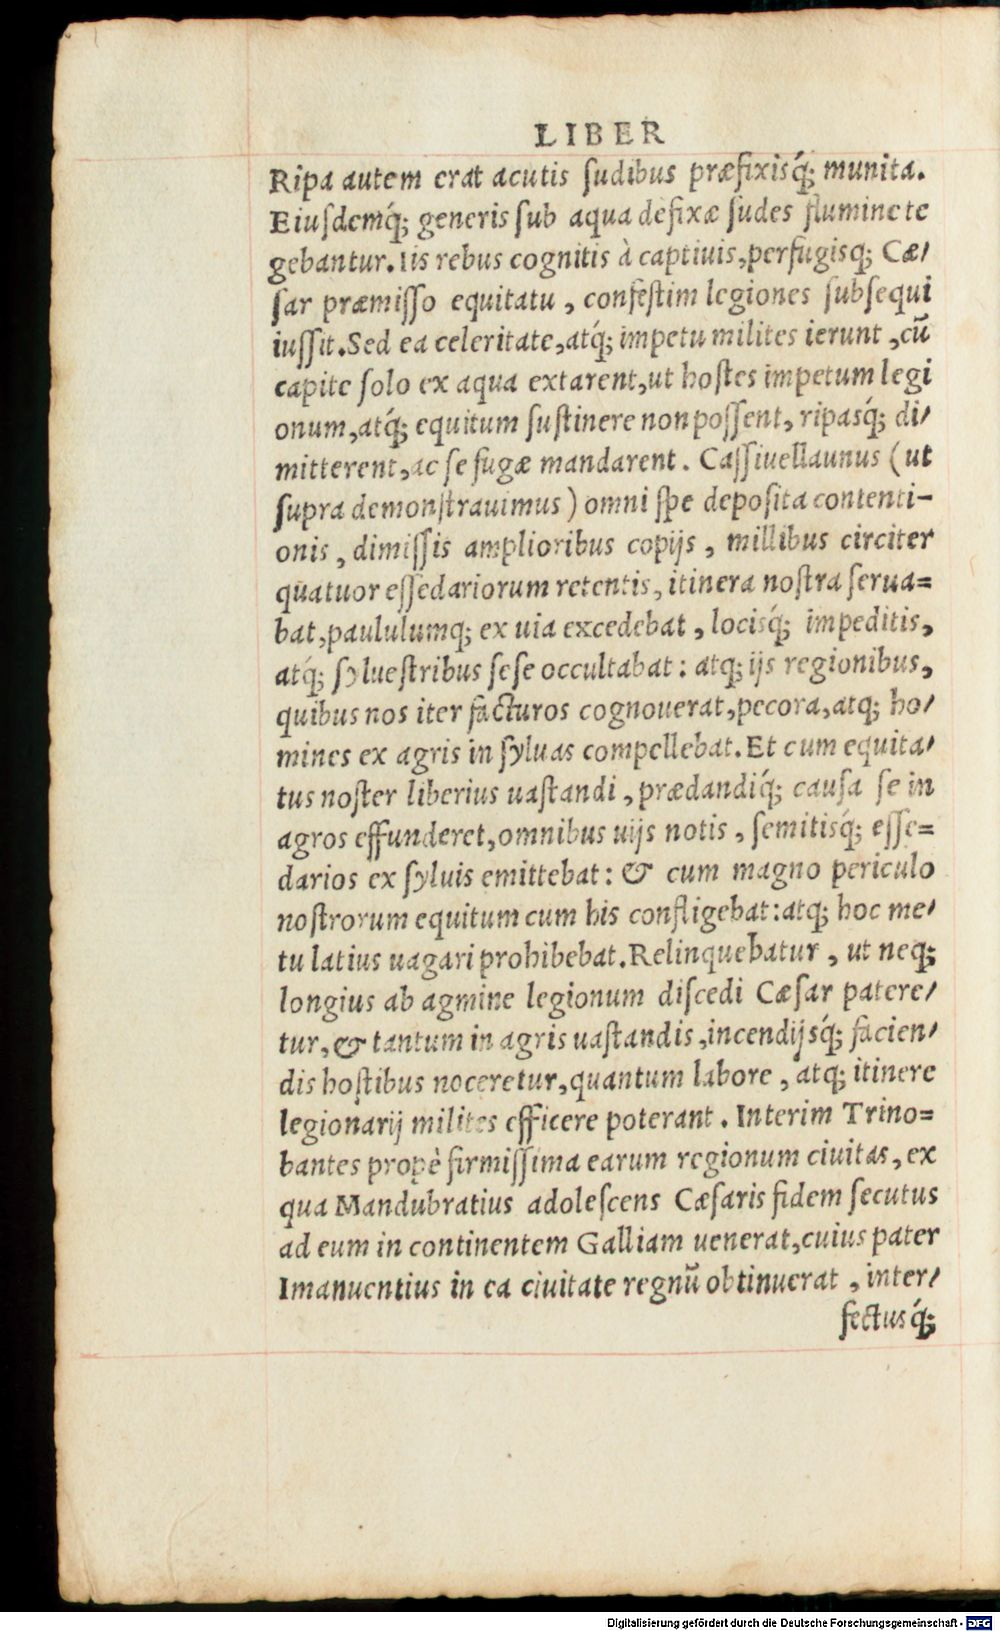 LIBER
Ripa autem erat acutis ſudibus præfixisq́; munita.
Eiuſdemq́; generis ſub aqua defixæ ſudes flumine te
gebantur. Iis rebus cognitis à captiuis, perfugisq; Cæ/
ſar præmiſſo equitatu, confeſtim legiones ſubſequi
iuſſit. Sed ea celeritate, atq́; impetu milites ierunt, cū
capite ſolo ex aqua extarent, ut hoſtes impetum legi
onum, atq́; equitum ſuſtinere non poſſent, ripasq́; di/
mitterent, ac ſe fugæ mandarent. Caſſiuellaunus (ut
ſupra demonſtrauimus) omni ſpe depoſita contenti-
onis, dimiſſis amplioribus copijs, millibus circiter
quatuor eſſedariorum retentis, itinera noſtra ſerua=
bat, paululumq; ex uia excedebat, locisq́; impeditis,
atq́; ſylueſtribus ſeſe occultabat: atq; ijs regionibus,
quibus nos iter facturos cognouerat, pecora, atq; ho/
mines ex agris in ſyluas compellebat. Et cum equita/
tus noſter liberius uaſtandi, prædandiq́; cauſa ſe in
agros effunderet, omnibus uijs notis, ſemitisq́; eſſe=
darios ex ſyluis emittebat: & cum magno periculo
noſtrorum equitum cum his confligebat: atq; hoc me/
tu latius uagari prohibebat. Relinquebatur, ut neq;
longius ab agmine legionum diſcedi Cæſar patere/
tur, & tantum in agris uaſtandis, incendijsq́; facien/
dis hoſtibus noceretur, quantum labore, atq; itinere
legionarij milites efficere poterant. Interim Trino=
bantes propè firmiſſima earum regionum ciuitas, ex
qua Mandubratius adoleſcens Cæſaris fidem ſecutus
ad eum in continentem Galliam uenerat, cuius pater
Imanuentius in ea ciuitate regnū obtinuerat, inter/
fectusq́;
Digitalisierung gefördert durch die Deutsche Forschungsgemeinschaft - DFG